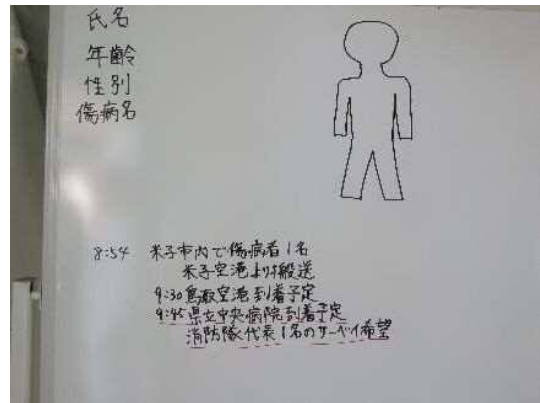 氏名
年齢
性別
傷病名
8:54 米子市内で傷病者1名
米子空港より搬送
9:30鳥取空港到着予定
9:45県立中央病院到着予定
消防隊代表1名のサーベイ希望